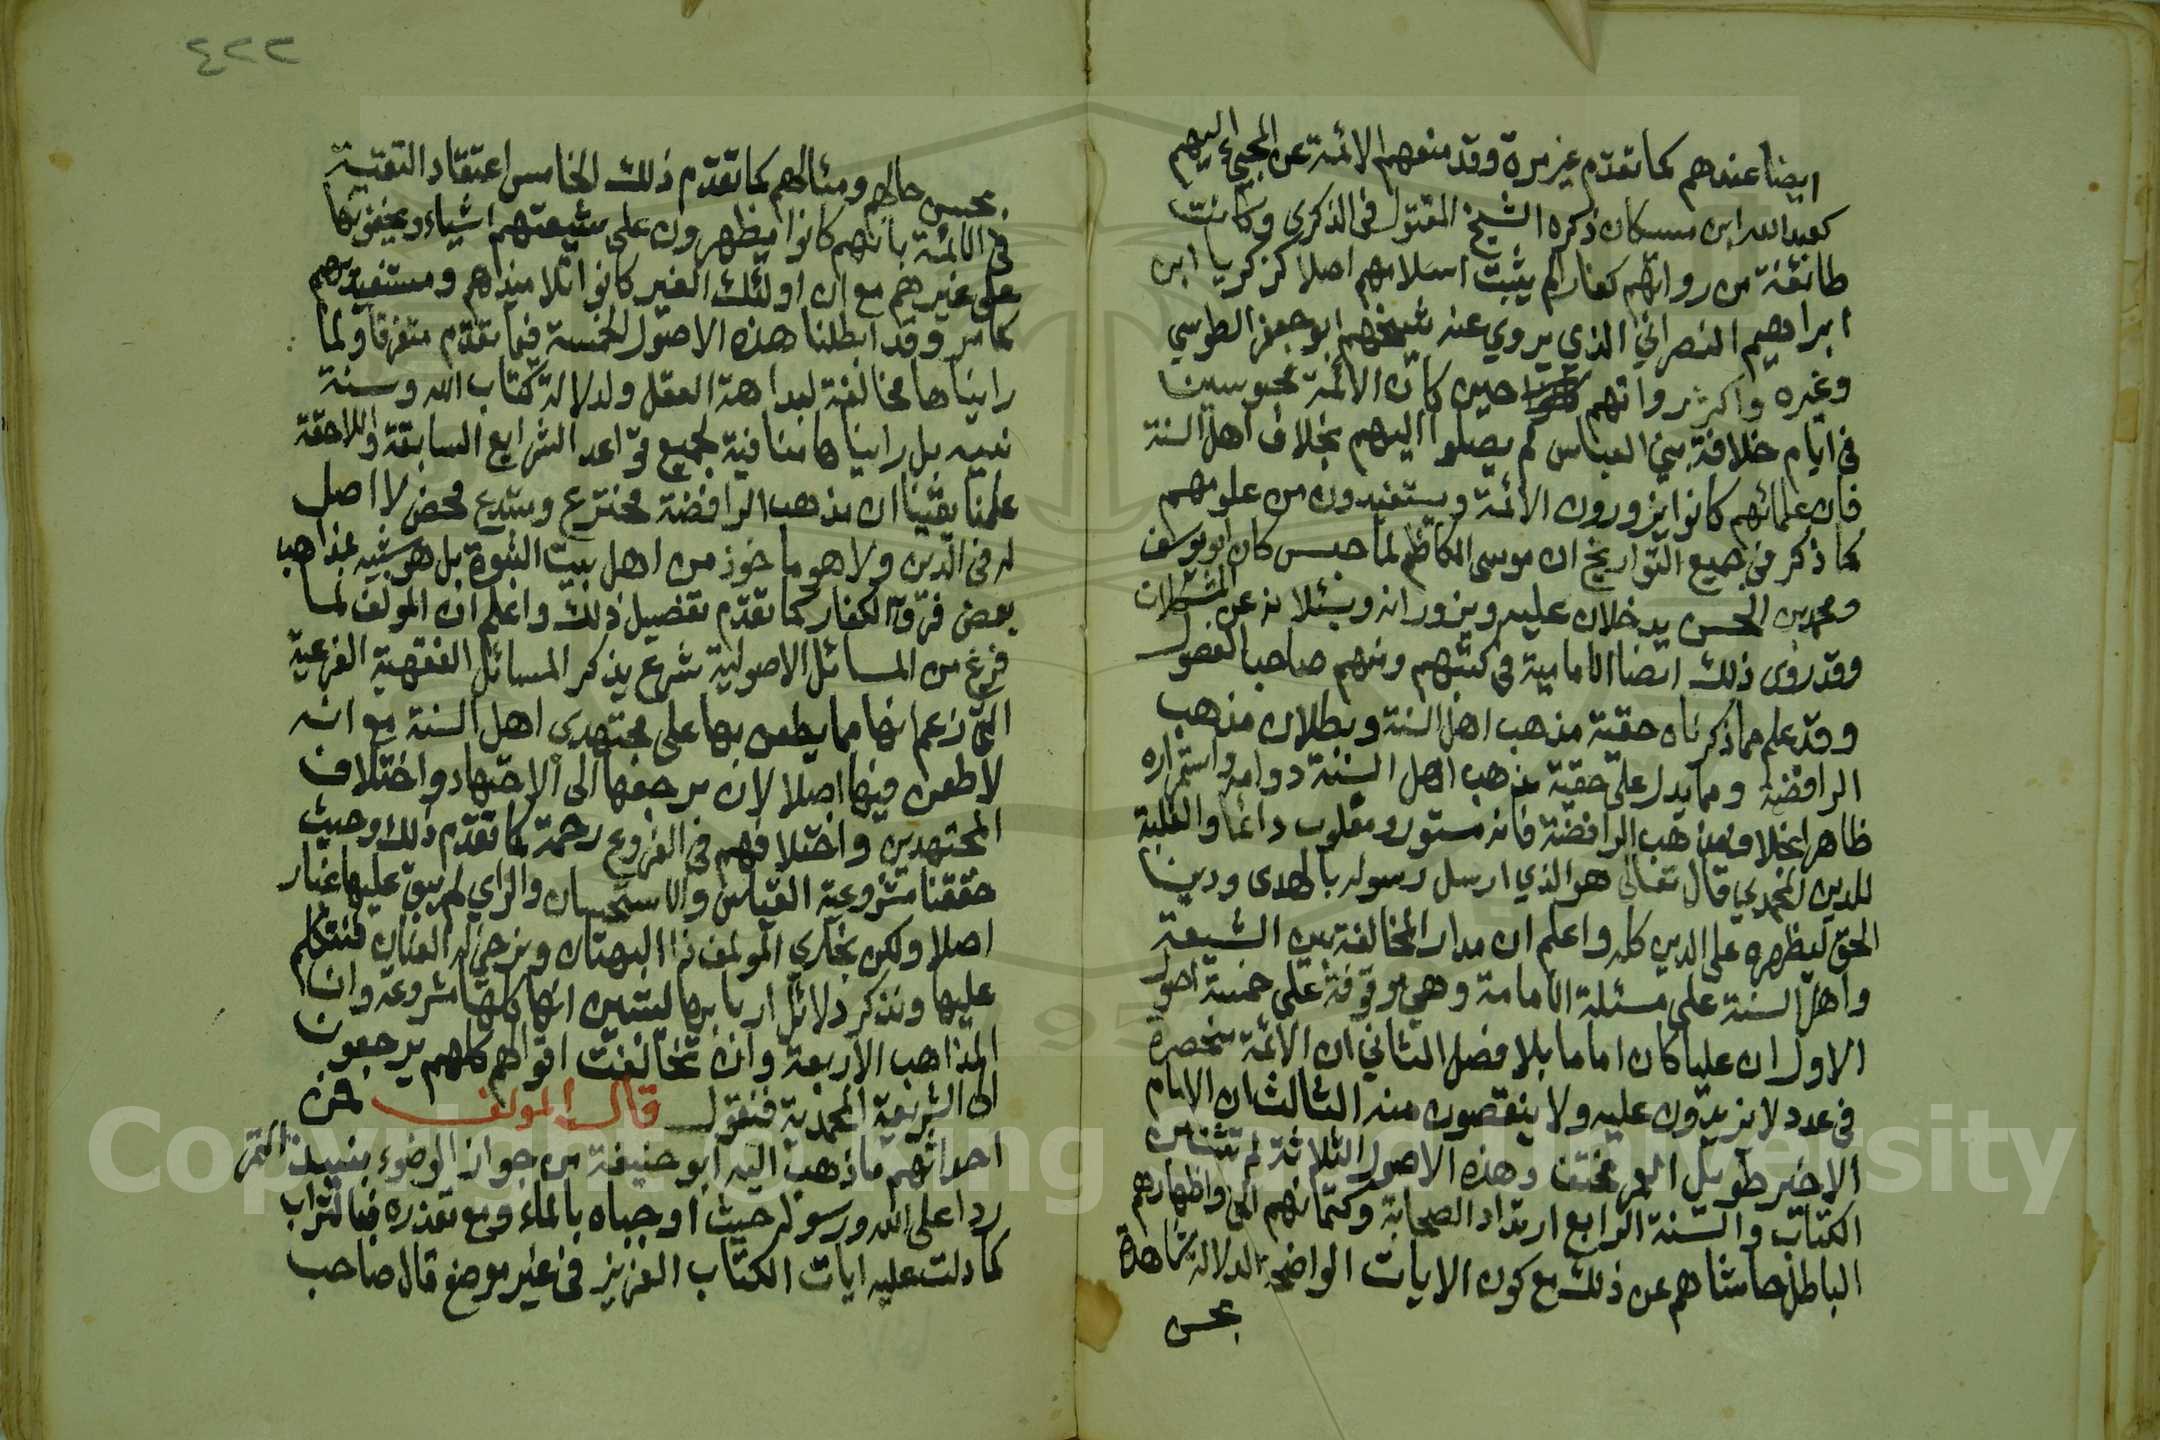 ايضا عندهم كما تقدم غير مرة وقد منعهم الائمة عن المجيئ اليهم
كعبد الله ابن مسكان ذكره الشيخ المقتول فى الذكرى وكانت
طائفة من رواتهم كفارا لم يثبت اسلامهم اصلا كزكريا ابن
ابراهيم النصراني الذي يروي عنه شيخهم ابو جعفر الطوسي
وغيره واكثر رواتهم حين كان الائمة محبوسين
فى ايام خلافة بني العباس لم يصلوا اليهم بخلاف اهل السنة
فان علمائهم كانوا يزورون الائمة ويستفيدون من علومهم
كما ذكر في جميع التواريخ ان موسى الكاظم لما حبس كان ابو يوسف
ومحمد بن الحسن يدخلان عليه ويزورانه ويسئلانه عن المشكلات
وقد روى ذلك ايضا الامامية في كتبهم ومنهم صاحب الفصول
وقد علم مما ذكرناه حقية مذهب اهل السنة وبطلان مذهب
الرافضة ومما يدل على حقية مذهب اهل السنة دوامه واستمراره
ظاهرا بخلاف مذهب الرافضة فانه مستور ومغلوب دائما والغلبة
للدين المحمدي قال تعالى هو الذي ارسل رسوله بالهدى ودين
الحق ليظهره على الدين كله واعلم ان مدار المخالفة بين الشيعة
واهل السنة على مسئلة الامامة وهي موقوفة على خمسة اصول
الاول ان عليا كان اماما بلا فصل الثاني ان الائمة منحصرة
فى عدد لا يزيدون عليه ولا ينقصون منه الثالث ان الامام
الاخير طويل العمر مختف وهذه الاصول الثلاثة لم تثبت من
الكتاب والسنة الرابع ارتداد الصحابة وكتمانهم الحق واظهارهم
الباطل حاشاهم عن ذلك مع كون الايات الواضحة الدلالة شاهدة
بحسن
٤٢٢
بحسن حالهم ومئالهم كما تقدم ذلك الخامس اعتقاد التقية
في الائمة بانهم كانوا يظهرون على شيعتهم اشياء ويخفونها
على غيرهم مع ان اولئك الغير كانوا تلاميذهم ومستفيديهم
كما مر وقد ابطلنا هذه الاصول الخمسة فيما تقدم متفرقا ولما
رايناها مخالفة لبداهة العقل ولدلالة كتاب الله وسنة
نبيه بل رايناها منافية لجميع قواعد الشرايع السابقة واللاحقة
علمنا يقينا ان مذهب الرافضة مخترع ومبتدع محض لا اصل
له فى الدين ولا هو ماخوذ من اهل بيت النبوة بل هو شبيه بمذاهب
بعض فرق الكفار كما تقدم تفصيل ذلك واعلم ان المولف لما
فرغ من المسائل الاصولية شرع يذكر المسائل الفقهية الفرعية
التي زعم انها مما يطعن بها على مجتهدى اهل السنة مع انه
لا طعن فيها اصلا لان مرجعها الى الاجتهاد واختلاف
المجتهدين واختلافهم في الفروع رحمة كما تقدم ذلك وحيث
حققنا مشروعية القياس والاستحسان والراي لم يبق عليها غبار
اصلا ولكن نجاري المولف ذا البهتان ونرخي له العنان فنتكلم
عليها ونذكر دلائل اربابها ليتبين انها كلها مشروعة وان
المذاهب الاربعة وان تخالفت اقوالهم كلهم يرجعون
الى الشريعة المحمدية فنقول قال المولف فمن
احداثهم ما ذهب اليه ابو حنيفة من جواز الوضوء بنبيذ التمر
ردا على الله ورسوله حيث اوجباه بالماء ومع تعذره فبالتراب
كما دلت عليه ايات الكتاب العزيز فى غير موضع قال صاحب
Copyright © King Saud University